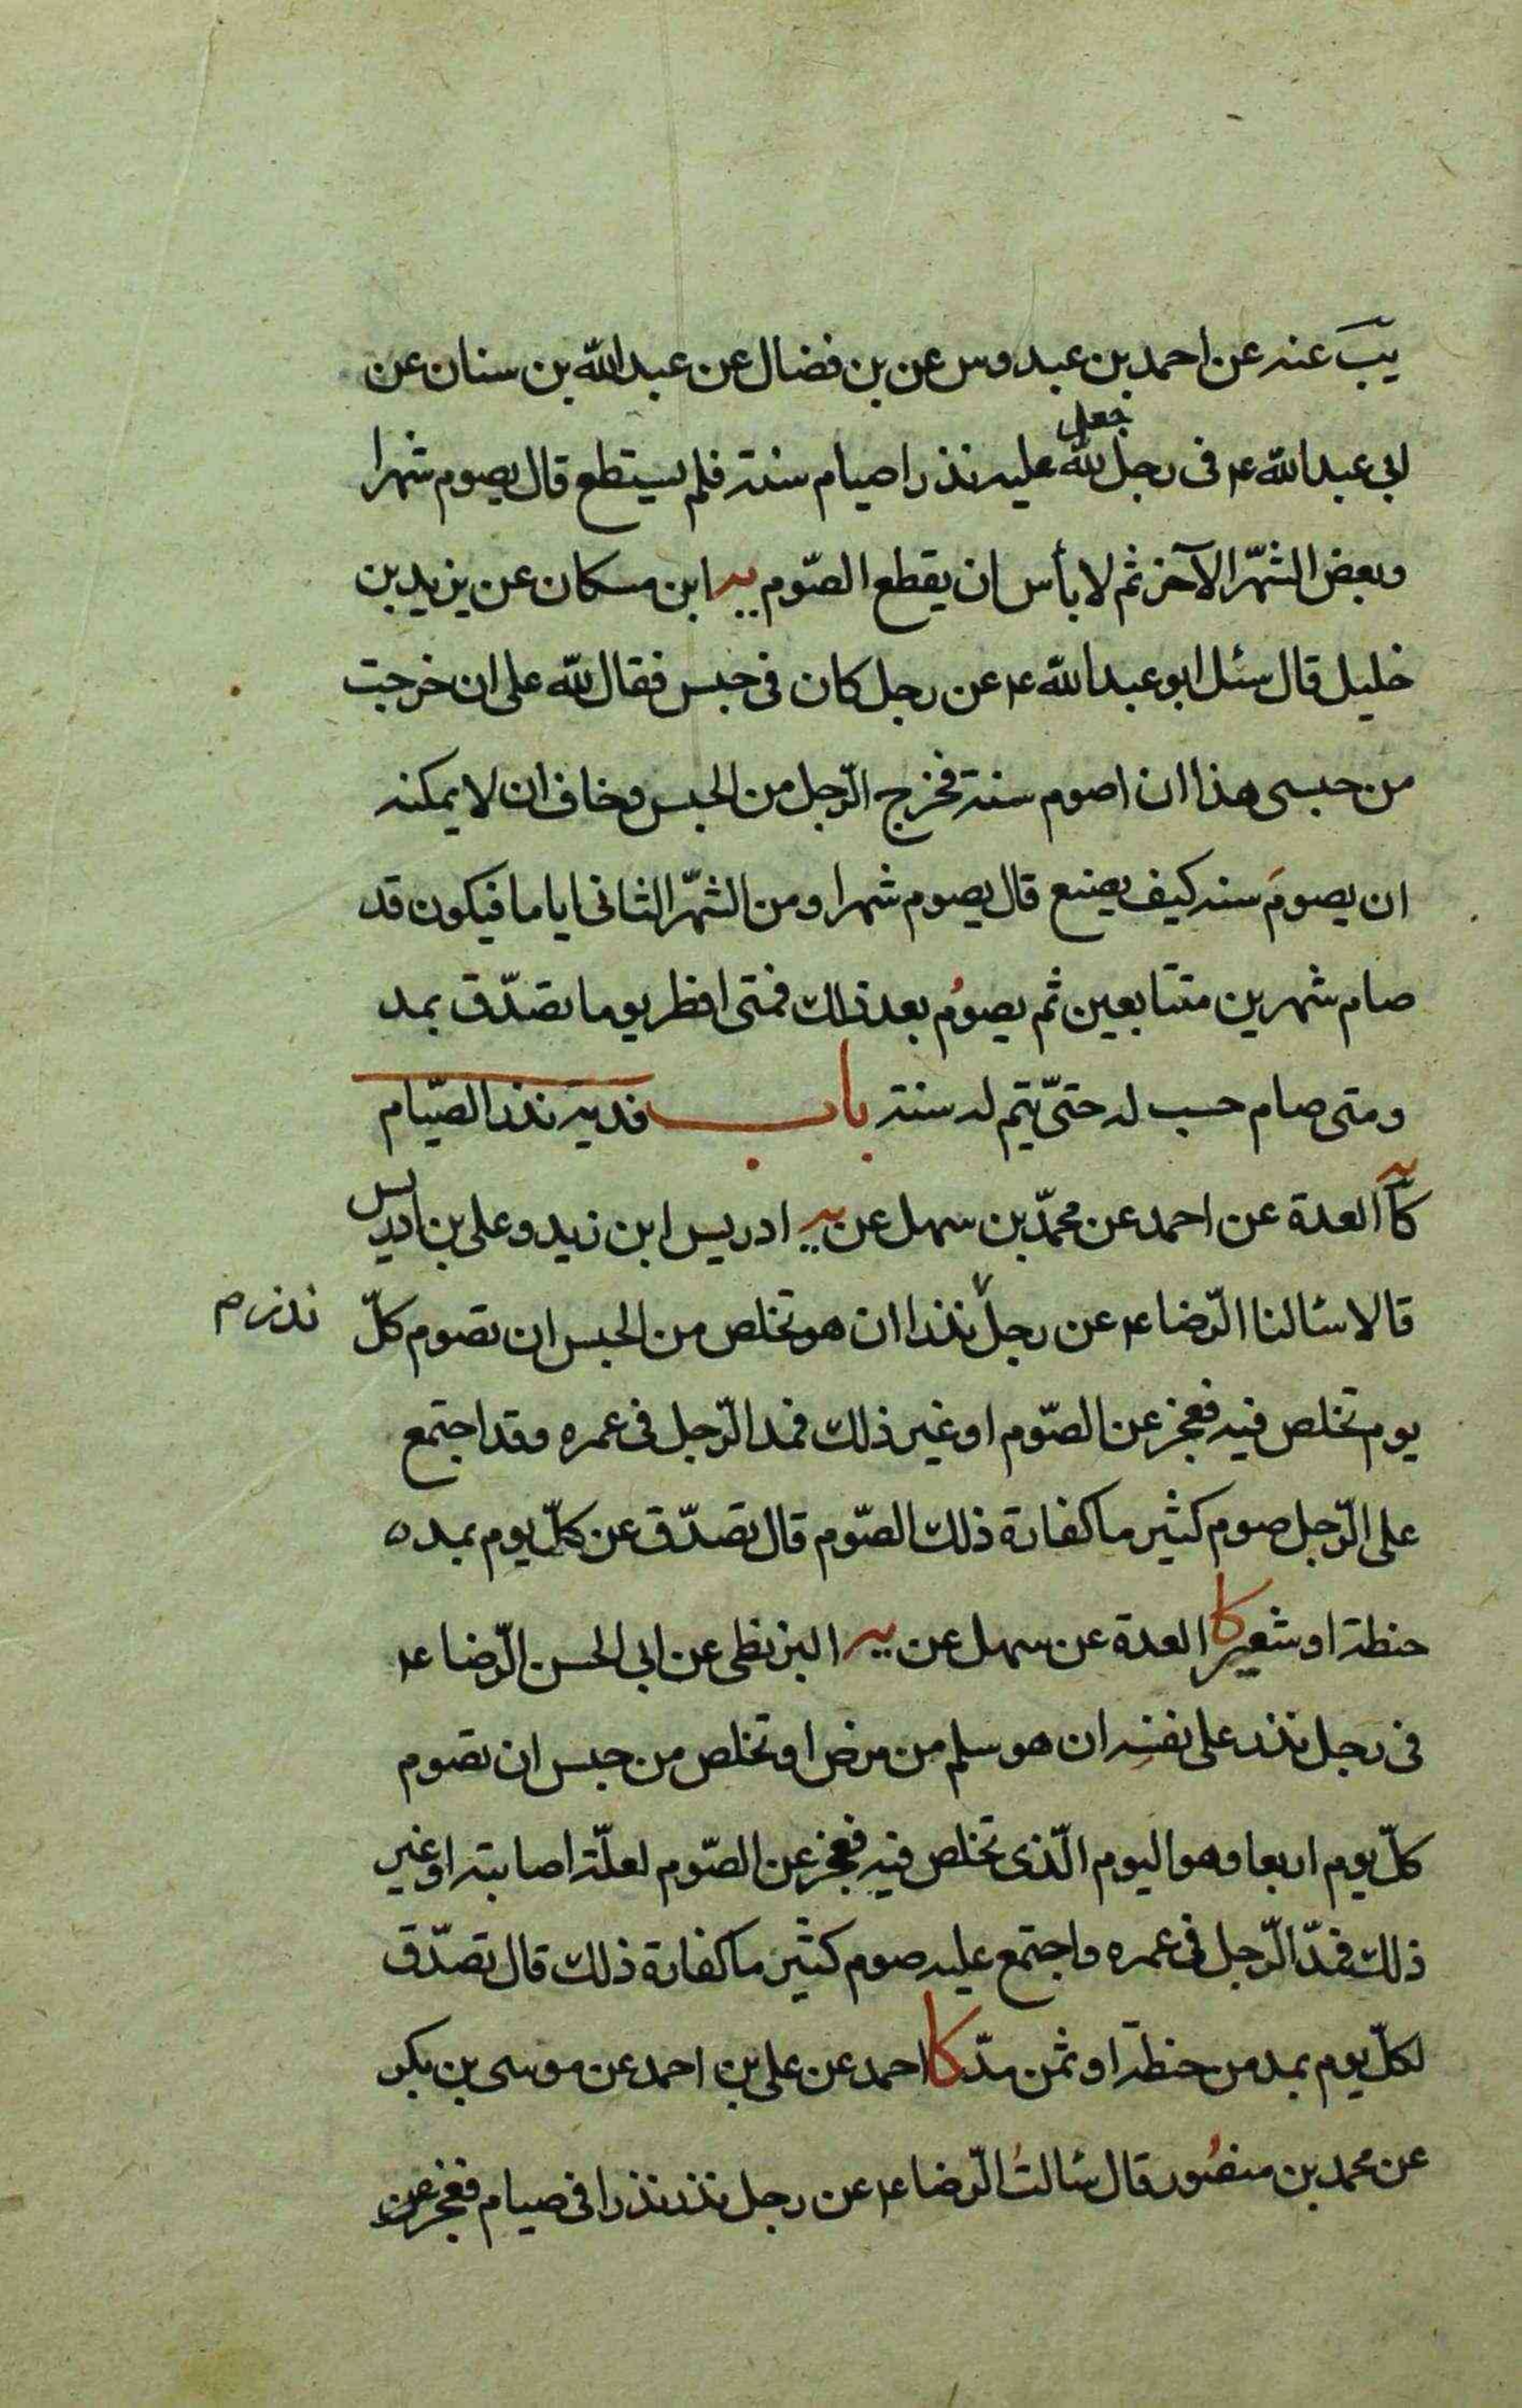 يبَ عنه عن احمد بن عبدوس عن بن فضال عن عبد الله بن سنان عن
جعل
ابى عبد الله ع فى رجل لله عليه نذرا صيام سنة فلم يستطع قال يصوم شهرا
وبعض الشّهر الآخر ثم لا بأس ان يقطع الصّوم يه ابن مسكان عن يزيد بن
خليل قال سئل ابو عبد الله ع عن رجل كان فى حبس فقال لله على ان خرجت
من حبسى هذا ان اصوم سنة فخرج الرّجل من الحبس وخاف ان لا يمكنه
ان يصومَ سنه كيف يصنع قال يصوم شهرا ومن الشّهر الثانى اياما فيكون قد
صام شهرين متتابعين ثم يصوُم بعد ذلك فمتى افطر يوما تصدّق بمد
ومتى صام حسب له حتّى يتم له سنة باب فدية نذر الصّيام
كآ العدة عن احمد عن محمّد بن سهل عن يه ادريس ابن زيد وعلى بن ادريس
قالا سئالنا الرّضا ع عن رجل نذرا ان هو تخلص من الحبس ان تصوم كلّ
نذر م
يوم تخلص فيه فعجز عن الصّوم او غير ذلك فمد الرّجل فى عمره وقد اجتمع
على الرّجل صوم كثير ما كفارة ذلك الصّوم قال تصدّق عن كلّ يوم بمد ه
حنطة او شعير كا العدة عن سهل عن يه البزنطى عن ابى الحسن الرّضا ع
فى رجل نذر على نفسه ان هو سلم من مرض او تخلص من حبس ان تصوم
كلّ يوم اربعا وهو اليوم الّذى تخلص فيه فعجز عن الصّوم لعلّة اصابته او غير
ذلك فمدّ الرّجل فى عمره واجتمع عليه صوم كثير ما كفارة ذلك قال تصدّق
لكلّ يوم بمد من حنطة او ثمن مدّ كا احمد عن على بن احمد عن موسى بن بكر
عن محمد بن منصُور قال سئالتُ الرّضا ع عن رجل نذر نذرا فى صيام فعجز عن